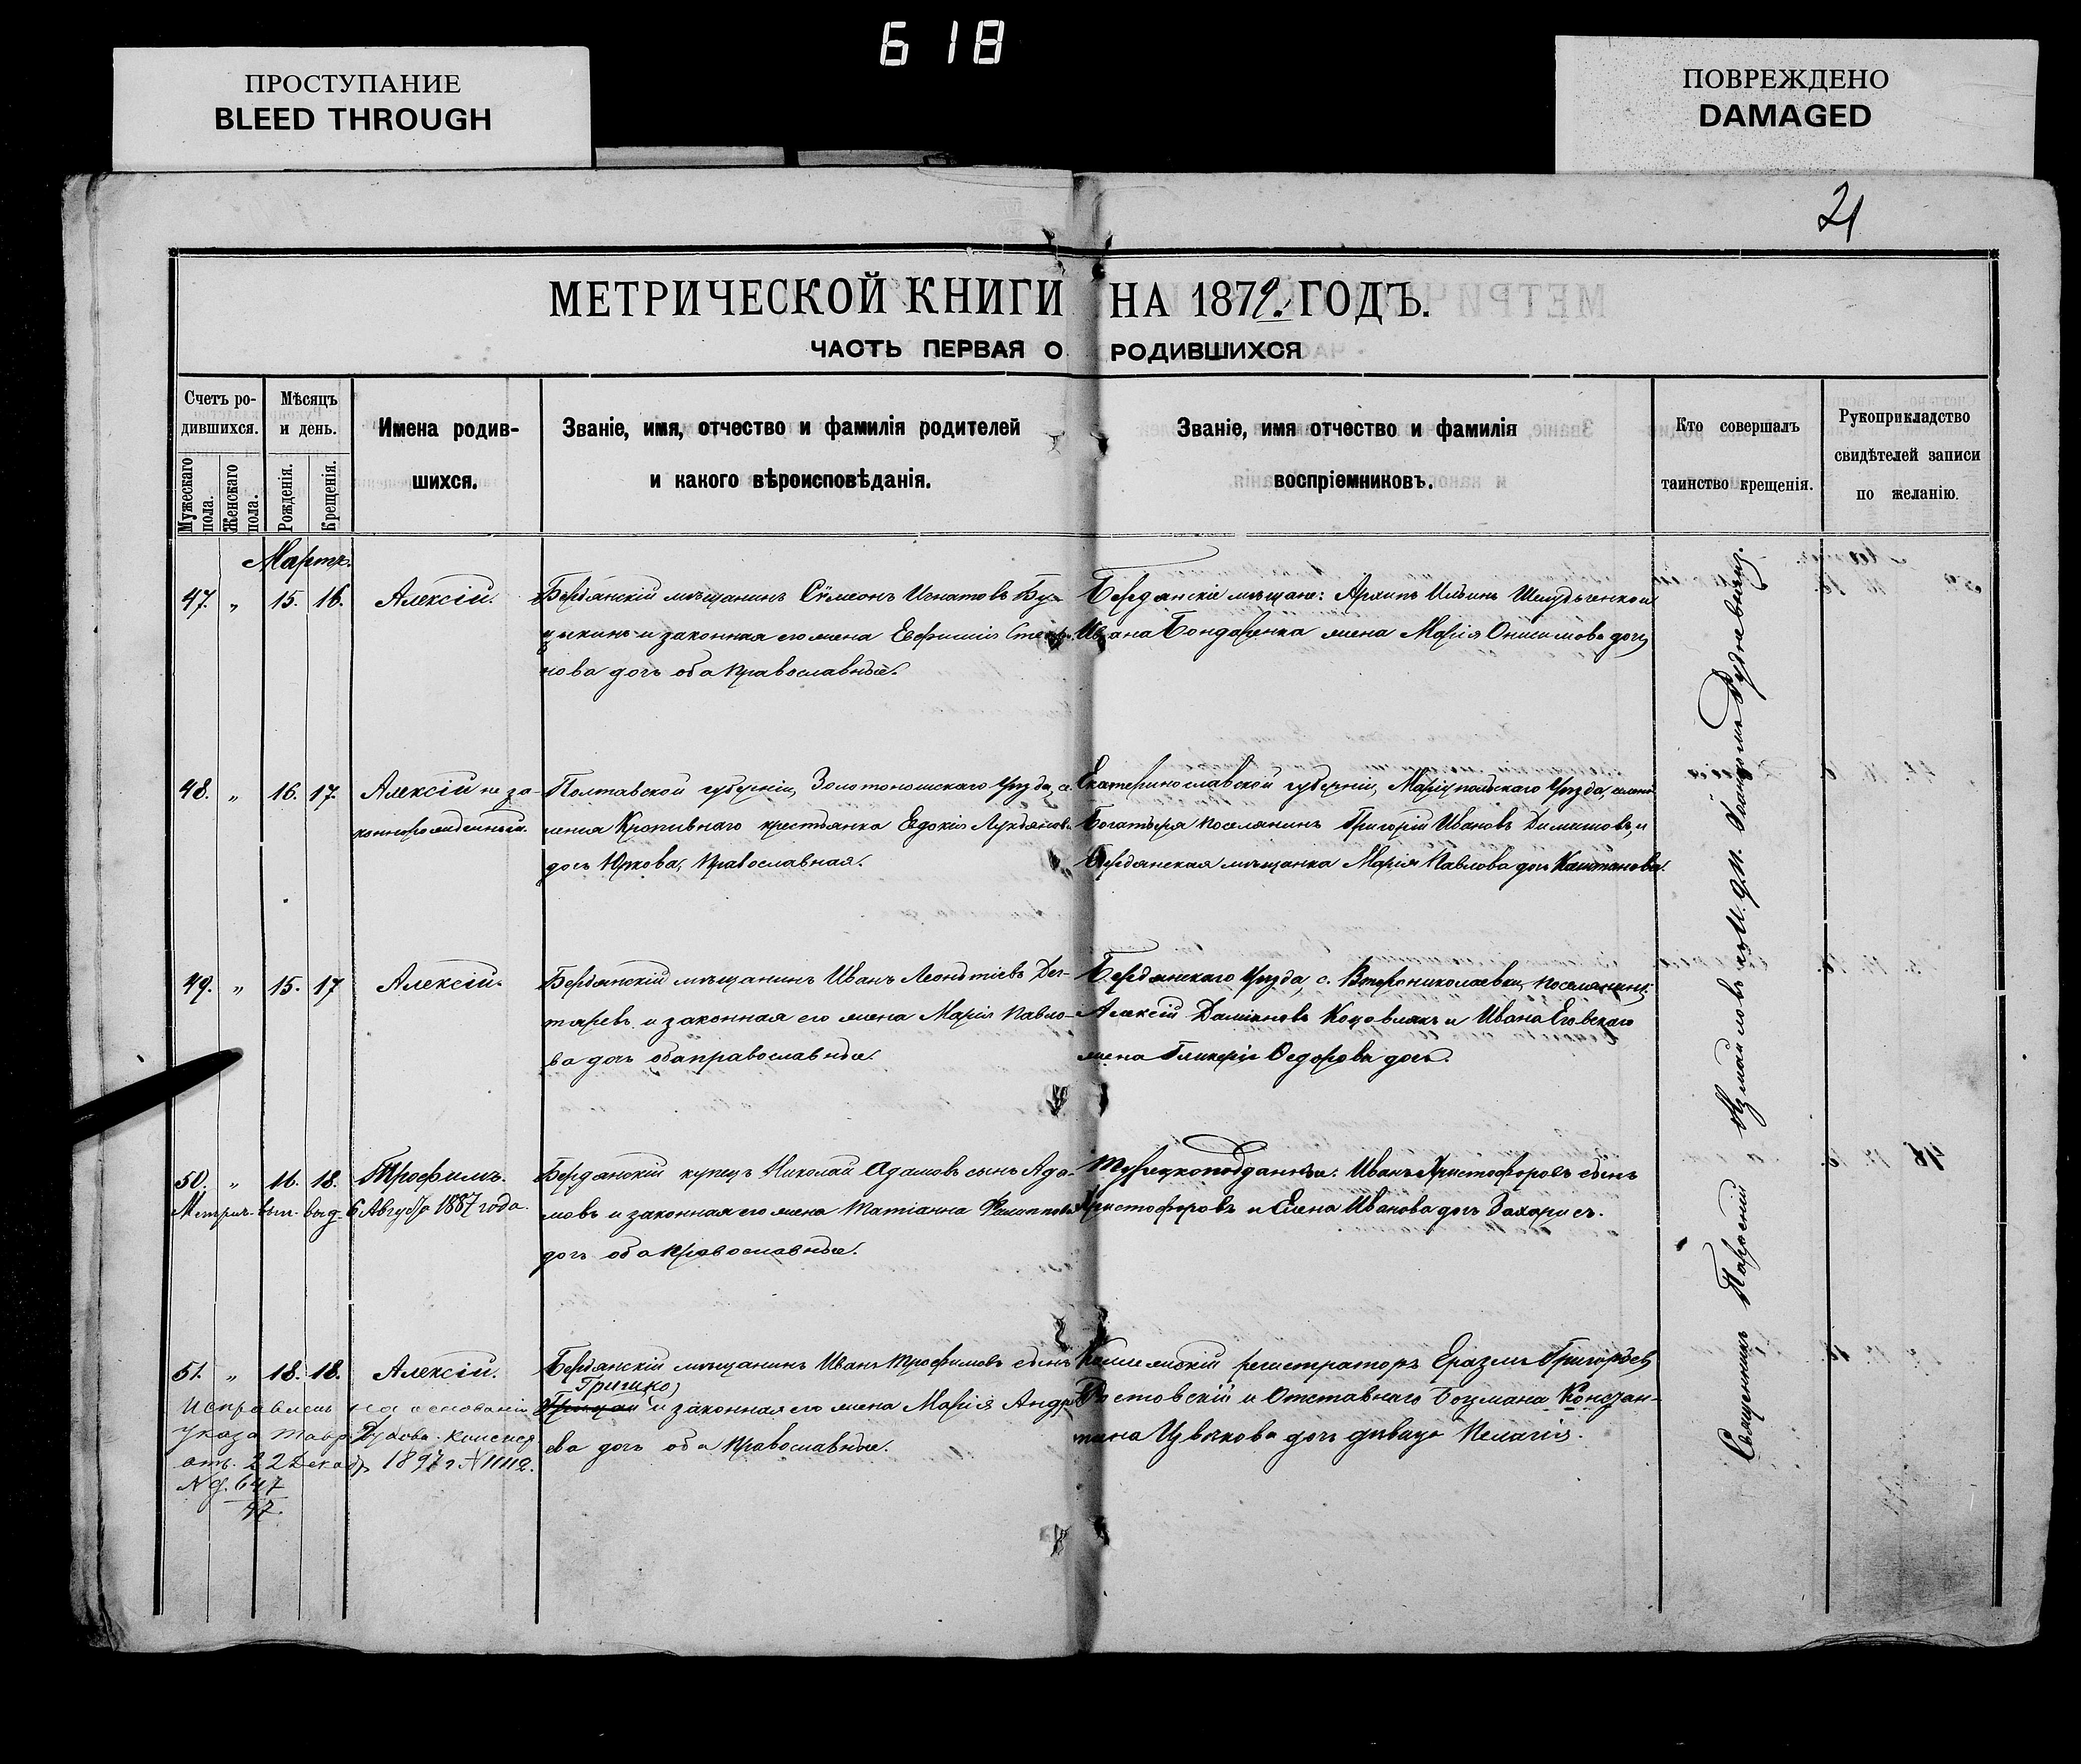 618
ПРОСТУПАНИЕ
BLEED THROUGH
ПОВРЕЖДЕНО
DAMAGED
21
МЕТРИЧЕСКОЙ КНИГИ НА 1879. ГОДЪ.
ЧАСТЬ ПЕРВАЯ О РОДИВШИХСЯ
Счетъ ро-
дившихся.
Мужескаго пола.
Женскаго пола.
Мѣсяцъ
и день.
Рожденія.
Крещенія.
Имена родив-
шихся.
Званіе, имя, отчество и фамилія родителей
и какого вѣроисповѣданія.
Званіе, имя отчество и фамилія
воспріемниковъ.
Кто совершалъ
таинство крещенія.
Рукоприкладство
свидѣтелей записи
по желанію.
Мартъ.
47. " 15. 16. Алексій.
Бердянскій мѣщанинъ Сѵмеонъ Игнатовъ Бу-
цыкинъ и законная его жена Евфимія Степа-
нова дочь оба православные.
Бердянскіе мѣщане: Архипъ Ильинъ и
Ивана Бондаренка жена Марія Онисимова дочь
48. " 16. 17. Алексій не за-
коннорожденный.
Полтавской губерніи, Золотоношскаго уѣзда, се-
ленія Кропивнаго крестьянка Евдокія Лукьянова
дочь Юркова, православная.
Екатеринославской губерніи, Маріупольскаго уѣзда, селенія
Богатыря поселянинъ Григорій Ивановъ и
Бердянская мѣщанка Марія Павлова дочь Каштанова.
49. " 15. 17 Алексій.
Бердянскій мѣщанинъ Иванъ Леонтіевъ Дег-
тяревъ и законная его жена Марія Павло-
ва дочь оба православные.
Бердянскаго уѣзда, с. Второниколаевки, поселянинъ
Алексій Даміановъ Коцовлякъ и Ивана
жена Гликерія Ѳедорова дочь.
50. " 16. 18. Трофимъ.
Метрич. вып. выд. 6 Августа 1887 года.
Бердянскій купецъ Николай Адамовъ сынъ Ада-
мовъ и законная его жена Татіанна Филиппова
дочь оба православные.
Турецкоподданные: Иванъ Христофоровъ сынъ
Христофоровъ и Елена Иванова дочь Захарисъ.
51. " 18. 18. Алексій.
Исправлен. на основаніи
указа Тавр. Духовн. Консист.
отъ 22 Декабр. 1897 г. № 11112.
№ д. 647
47.
Бердянскій мѣщанинъ Иванъ Трофимовъ сынъ
Гришко
Грицай и законная его жена Марія Андре-
ева дочь оба православные.
Коллежскій регистраторъ Еразмъ Григорьевъ
Ростовскій и Отставнаго Боцмана Констан-
тина Цвѣткова дочь дѣвица Пелагія.
Священникъ Парѳеній Измайловъ съ И. д. п. Іоанномъ